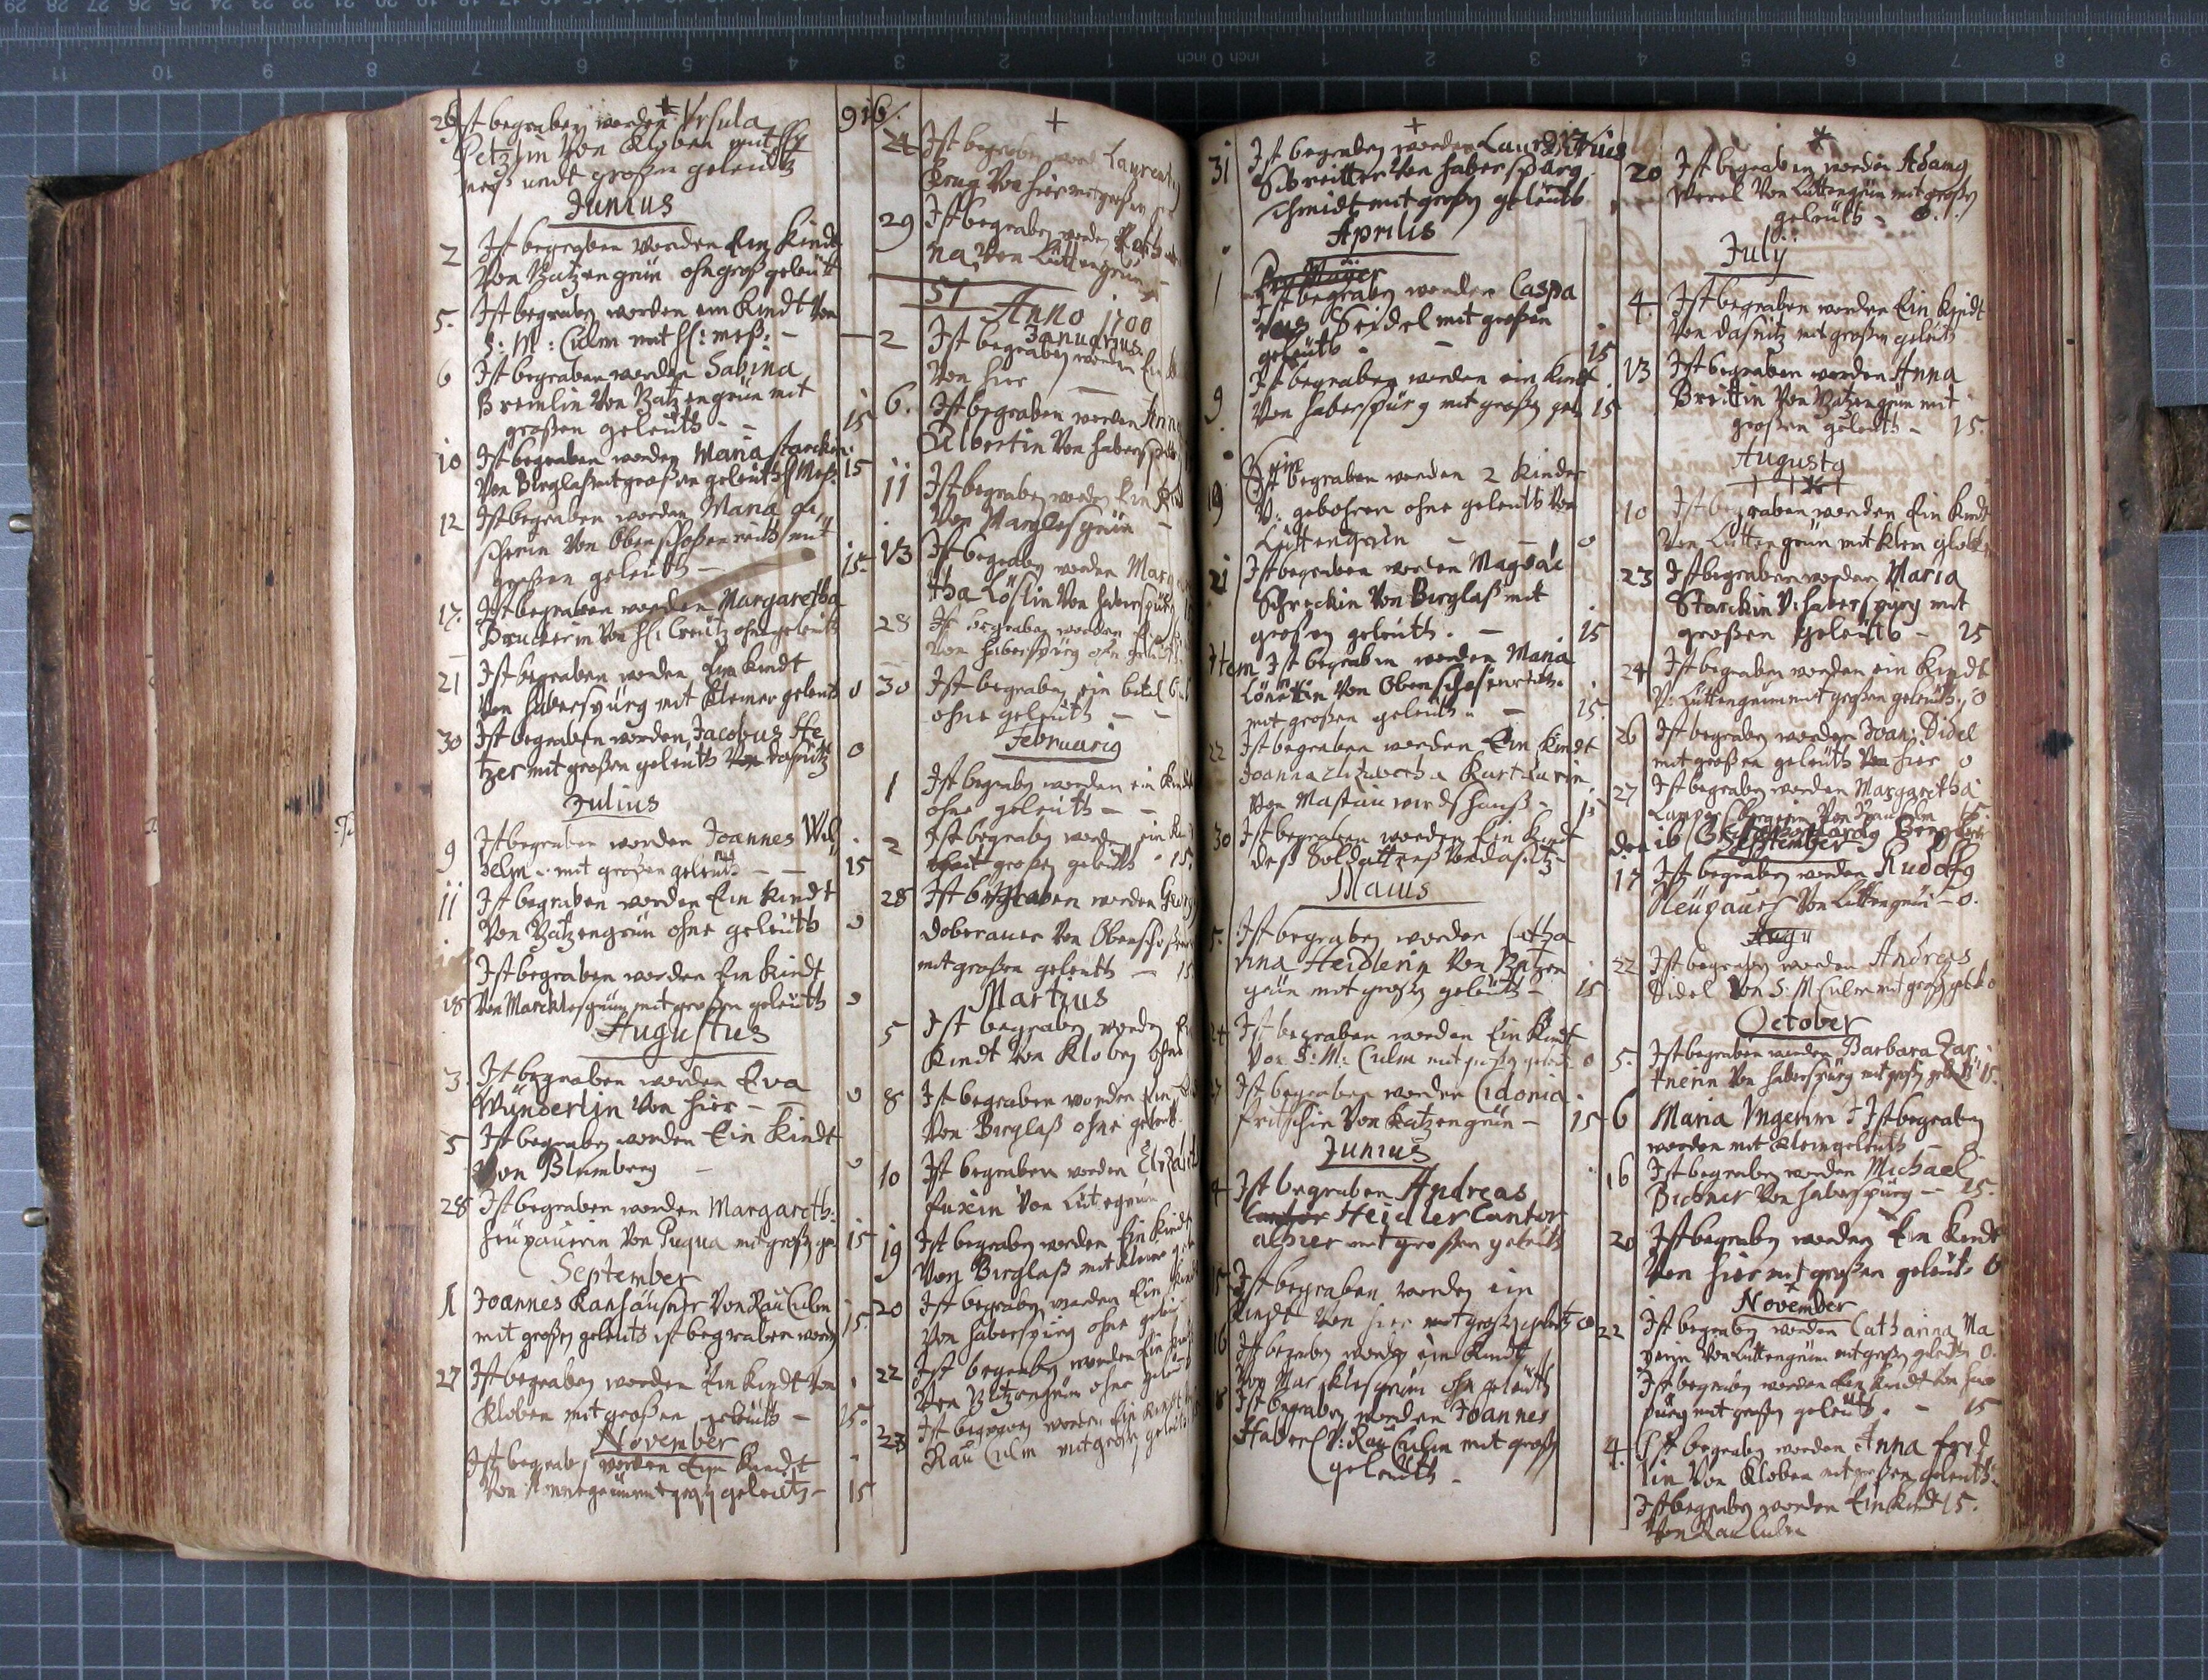 916.
26 Ist begraben worden Ursula
Petzlin von Kloben mit
meß undt großen geleuth
Junius
2 Ist begraben worden Ein Kindt
Von Katzengrün ohn groß geleut
5. Ist begraben worden ein Kindt Von
S: M: Culm mit H: meß: –
6 Ist begraben worden Sabina
Bremlin Von Katzengrün mit
großen geleuth – – 15
10 Ist begraben worden Maria Starckin
Von Birglaß mit großen geleuth Meß: 15
12 Ist begraben worden Maria
scherin Von Oberschoßenreuth mit
großen geleuth – 15
17. Ist begraben worden Margaretha
Bruckerin Von H: Creutz ohne geleuth
21 Ist begraben worden Ein Kindt
Von haberspürg mit Kleiner geleut 0
30 Ist begraben worden Jacobus
tzer mit großen geleuth Von dasnitz 0
Julius
9 Ist begraben worden Joannes Wil
helm mit großen geleuth – – 15
11 Ist begraben worden Ein Kindt
Von Katzengrün ohne geleuth 0
Ist begraben worden Ein Kindt
18 Von Marcklesgrün mit großen geleuth 0
Augustus
3. Ist begraben worden Eva
Wünderlin Von hier – – 0
5 Ist begraben worden Ein Kindt
Von Blumberg – 0
28 Ist begraben worden Margareth:
Heupauerin Von Puqua mit groß ge 15
September
1 Joannes Ranhäußer Von Rau Culm
mit großen geleuth ist begraben worden 15.
27 Ist begraben worden Ein Kindt Von
Kloben mit großen geleuth – 15.
November
Ist begraben worden Ein Kindt
Von geleuth – 15
24 Ist begraben word Laurentj
Krug Von hier mit großen ge
29 Ist begraben worden
na, Von Lüttengrün
51 Anno 1700
Januarius.
2 Ist begraben worden Ein
Von hier –
6. Ist begraben worden Anna
Albertin Von habersp
11 Ist begraben worden Ein
Von Marglesgrün –
13 Ist begraben worden Marga
tha Löslin Von haberspürg
28 Ist begraben worden
Von haberspürg ohn geleut
30 Ist begraben ein betel
ohne geleuth – –
Februarig
1 Ist begraben worden ein Kindt
ohne geleuth – –
2 Ist begraben worden ein
mit großen geleuth – 15.
28 Ist begraben worden Georg
doberauer Von Oberschoßen
mit großen geleuth – 15
Martius
5 Ist begraben worden
Kindt Von Kloben ohne
8 Ist begraben worden Ein
Von Birglaß ohne geleut.
10 Ist begraben worden Elisabet
fuxin Von Lütegrün
19 Ist begraben worden Ein Kindt
Von Birglaß mit kleine
20 Ist begraben worden Ein Kindt
Von haberspürg ohne
22 Ist begraben worden Ein
Von Katzengrün ohne geleuth
23 Ist begraben worden Ein Kindt
Rau Culm mit großen geleuth
917
31 Ist begraben worden Laurentius
Schreitter Von haberspürg
schmidt mit großen geleuth
Aprilis
1 Ist begraben worden Caspa
rus Seidel mit großen
geleuth – – 15
9 Ist begraben worden ein Kindt
Von haberspürg mit großen gel 15
19 Sein begraben worden 2 Kinder
V: gebohren ohne geleuth Von
Lüttengrün – – 0
21 Ist begraben worden Magdal
Schreckin Von Birglaß mit
großen geleuth. – 15
Item Ist begraben worden Maria
Lönertin Von Oberschoßenreuth.
mit großen geleuth – 15.
22 Ist begraben worden Ein Kindt
Joanna Elizabetha
Von Mastau wirdshauß – 15
30 Ist begraben worden Ein Kindt
deß Soldattenß Von dasnitz
Maius
5. Ist begraben worden Catha
rina Heidlerin Von Katzen
grün mit großen geleuth – 15
24 Ist begraben worden Ein Kindt
Von S: M: Culm mit großen geleuth 0
Ist begraben worden Cidonia
Fritschin Von Katzengrün – 15
Junius
4 Ist begraben Andreas
Cantor Heidler Cantor
alhier mit großen geleuth
15 Ist begraben worden ein
Kindt Von hier mit großen geleuth 0
16 Ist begraben worden ein Kindt
Von Marcklesgrün ohn geleuth
8 Ist begraben worden Joannes
Haberl V: Rau Culm mit großen
geleuth –
20 Ist begraben worden Adamg
Werel Von Lüttengrün mit großen
geleuth – 0.
July
4. Ist begraben worden Ein Kindt
Von dasnitz mit großen geleuth
13 Ist begraben worden Anna
Breittin Von Katzengrün mit
großen geleuth – 15.
Augustg
10 Ist begraben worden Ein Kindt
Von Lüttengrün mit klein glocken
23 Ist begraben worden Maria
Starckin V: haberspürg mit
großen geleuth – 15
24 Ist begraben worden ein Kindt
V: Lüttengrün mit großen geleuth, 0
26 Ist begraben worden Joan: Didel
mit großen geleuth Von hier 0
27 Ist begraben worden Margaretha
Von Rau Culm 15.
den 16
September
17 Ist begraben worden Rudolfg
Neupauer Von Littengrün – 0.
Augu
22 Ist begraben worden Andreas
Didel Von S: M Culm mit groß gelei 0
October
5. Ist begraben worden Barbara Zar
tnerin Von haberspürg mit groß geleut 15.
6 Maria Ungerin Ist begraben
worden mit klein geleuth – 0.
16 Ist begraben worden Michael
Bichner Von haberspürg – 15.
20 Ist begraben worden Ein Kindt
Von hier mit großen geleut 0
November
22 Ist begraben worden Catharina Ma
yerin Von Lüttengrün mit großen geleuth 0.
Ist begraben worden Ein Kindt Von haber
spürg mit großen geleuth. – 15
4. Ist begraben worden Anna
lin Von Kloben mit großen geleuth.
Ist begraben worden Ein Kindt 15.
Von Rau Culm